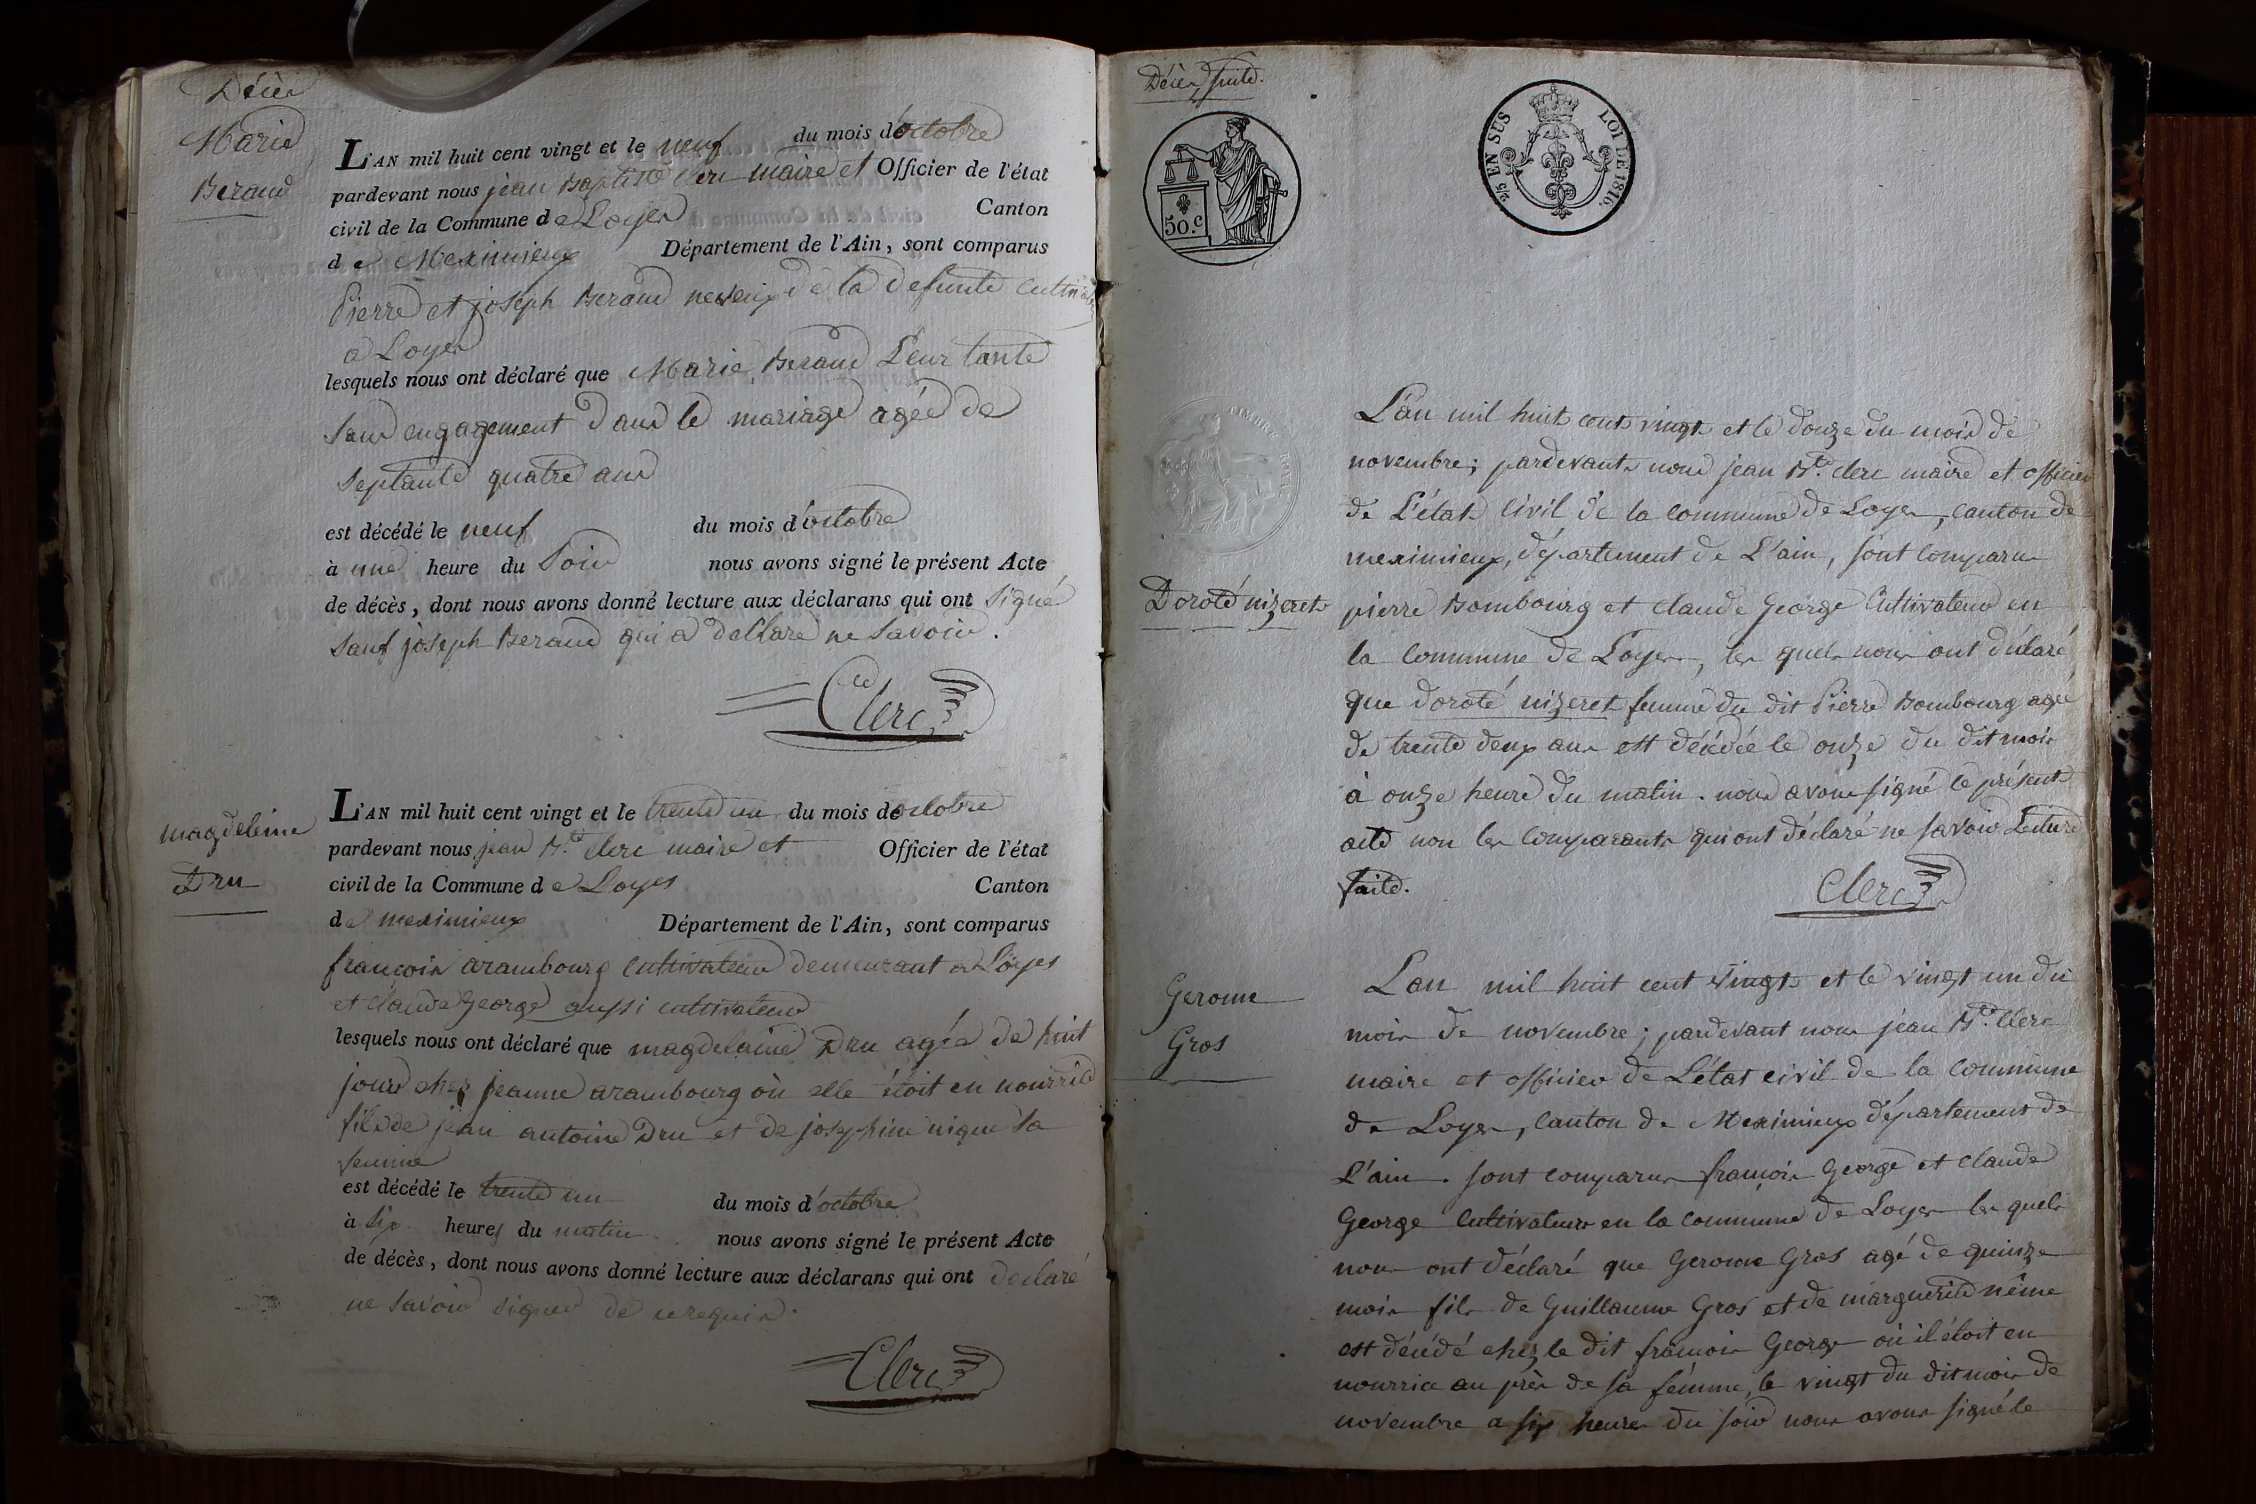 Décès
Marie
Beraud
L'AN mil huit cent vingt et le neuf du mois d'octobre
pardevant nous jean Baptiste clerc maire et Officier de l'état
civil de la Commune de Loyes Canton
de Meximieux Département de l'Ain, sont comparus
Pierre et joseph Beraud neveux de la defunte
a Loyes
lesquels nous ont déclaré que Marie Beraud Leur tante
sans engagement dans le mariage agée de
septante quatre ans
est décédé le neuf du mois d'octobre
à une heure du Soir nous avons signé le présent Acte
de décès, dont nous avons donné lecture aux déclarans qui ont signé
sauf joseph Beraud qui a déclaré ne savoir.
Clerc
magdeleine
Dru
L'AN mil huit cent vingt et le trente un du mois doctobre
pardevant nous jean Bte clerc maire et Officier de l'état
civil de la Commune de Loyes Canton
de meximieux Département de l'Ain, sont comparus
françois arambourg cultivateur demeurant a Loyes
et claude George aussi cultivateur
lesquels nous ont déclaré que magdelaine Dru agée de huit
jours chez jeanne arambourg où elle étoit en nourrice
fille de jean antoine Dru et de josephine nique sa
femme
est décédé le trente un du mois d'octobre
à six heures du matin nous avons signé le présent Acte
de décès, dont nous avons donné lecture aux déclarans qui ont declaré
ne savoir signer de ce requis.
Clerc
Décès suite.
50.c
2/5 EN SUS LOI DE 1816.
L'an mil huit cent vingt et le douze du mois de
novembre; pardevant nous jean Bte clerc maire et officier
de L'état Civil de la commune de Loyes, canton de
meximieux, département de L'ain, sont comparus
Doroté nizeret
pierre Bombourg et claude George Cultivateurs en
la Commune de Loyes, les quels nous ont déclaré
que doroté nizeret femme du dit Pierre Bombourg agée
de trente deux ans est décédée le onze du dit mois
à onze heure du matin. nous avons signé le présent
acte non les comparants qui ont déclaré ne savoir Lecture
faite.
Clerc
Gerome
Gros
L'an mil huit cent vingt et le vingt un du
mois de novembre; pardevant nous jean Bte Clerc
maire et officier de L'état civil de la commune
de Loyes, Canton de Meximieux département de
L'ain. sont comparus françois George et claude
George Cultivateurs en la commune de Loyes les quels
nous ont déclaré que Gerome Gros agé de quinze
mois fils de Guillaume Gros et de marguerite même
est décédé chez le dit françois George où il étoit en
nourrice au près de sa femme, le vingt du dit mois de
novembre a six heures du soir nous avons signé le